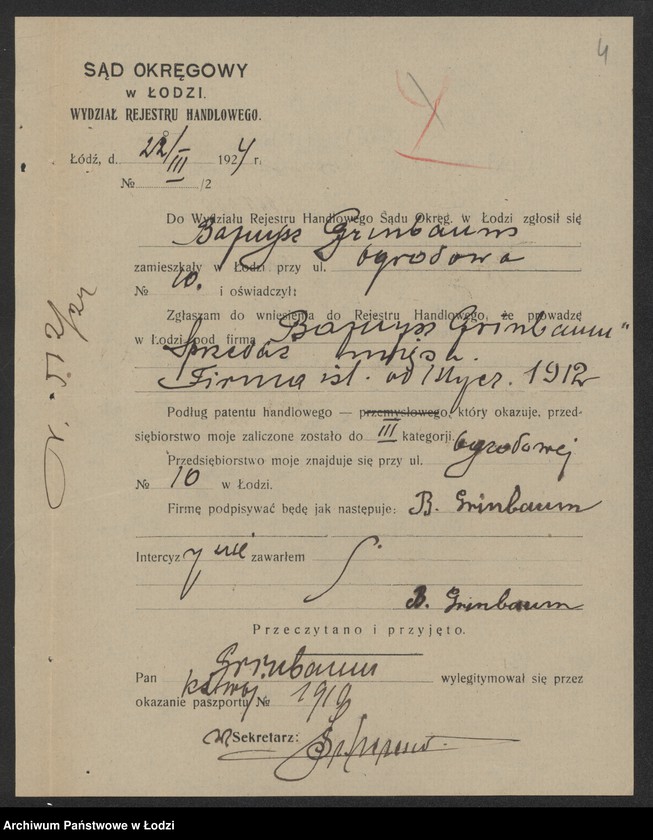 4
SĄD OKRĘGOWY
w ŁODZI.
WYDZIAŁ REJESTRU HANDLOWEGO.
Łódź, d. 22/III 1924 r.
№ /2
Do Wydziału Rejestru Handlowego Sądu Okręg. w Łodzi zgłosił się
Grinbaum
zamieszkały w Łodzi przy ul. Ogrodowa
№ 10. i oświadczył:
Zgłaszam do wniesienia do Rejestru Handlowego, że prowadzę
w Łodzi pod firmą Grinbaum"
Sprzedaż mięsa.
Firma ist. od 1912
Podług patentu handlowego — przemysłowego, który okazuje, przed-
siębiorstwo moje zaliczone zostało do III kategorji.
Przedsiębiorstwo moje znajduje się przy ul. Ogrodowej
№ 10 w Łodzi.
Firmę podpisywać będę jak następuje: B. Grinbaum
Intercyzy nie zawarłem
B. Grinbaum
Przeczytano i przyjęto.
Pan Grinbaum wylegitymował się przez
okazanie paszportu № 1919
Sekretarz:
Archiwum Państwowe w Łodzi